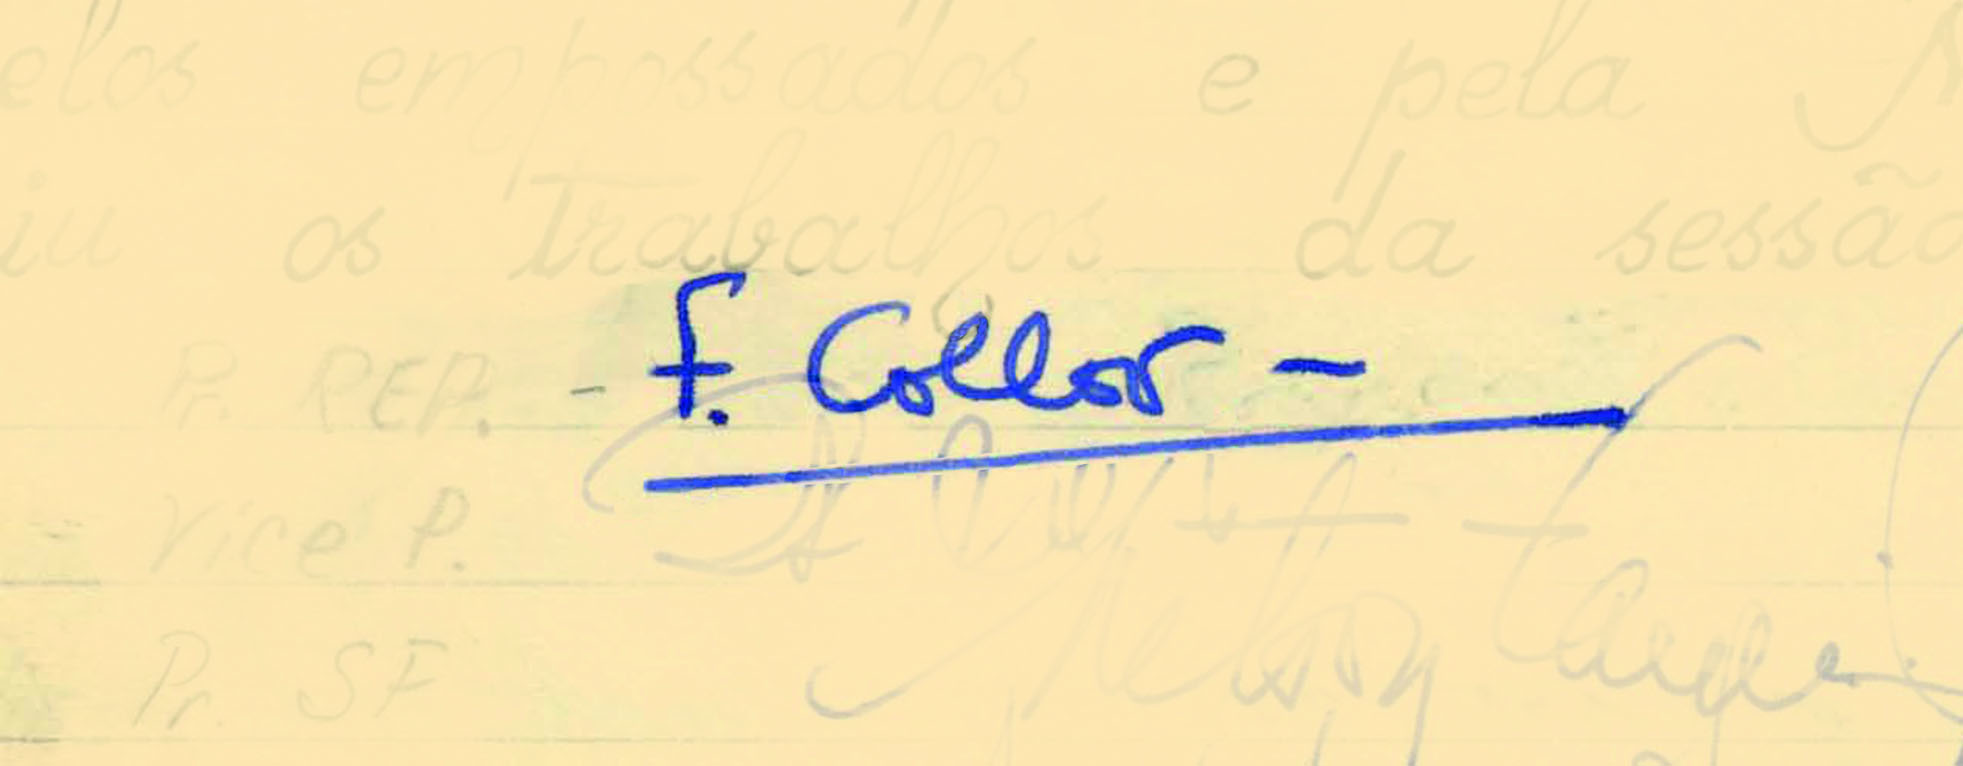 elos empossados e pela
iu os trabalhos da sessão
Pr. REP. - F. Collor -
Vice P.
Pr. SF Nelson